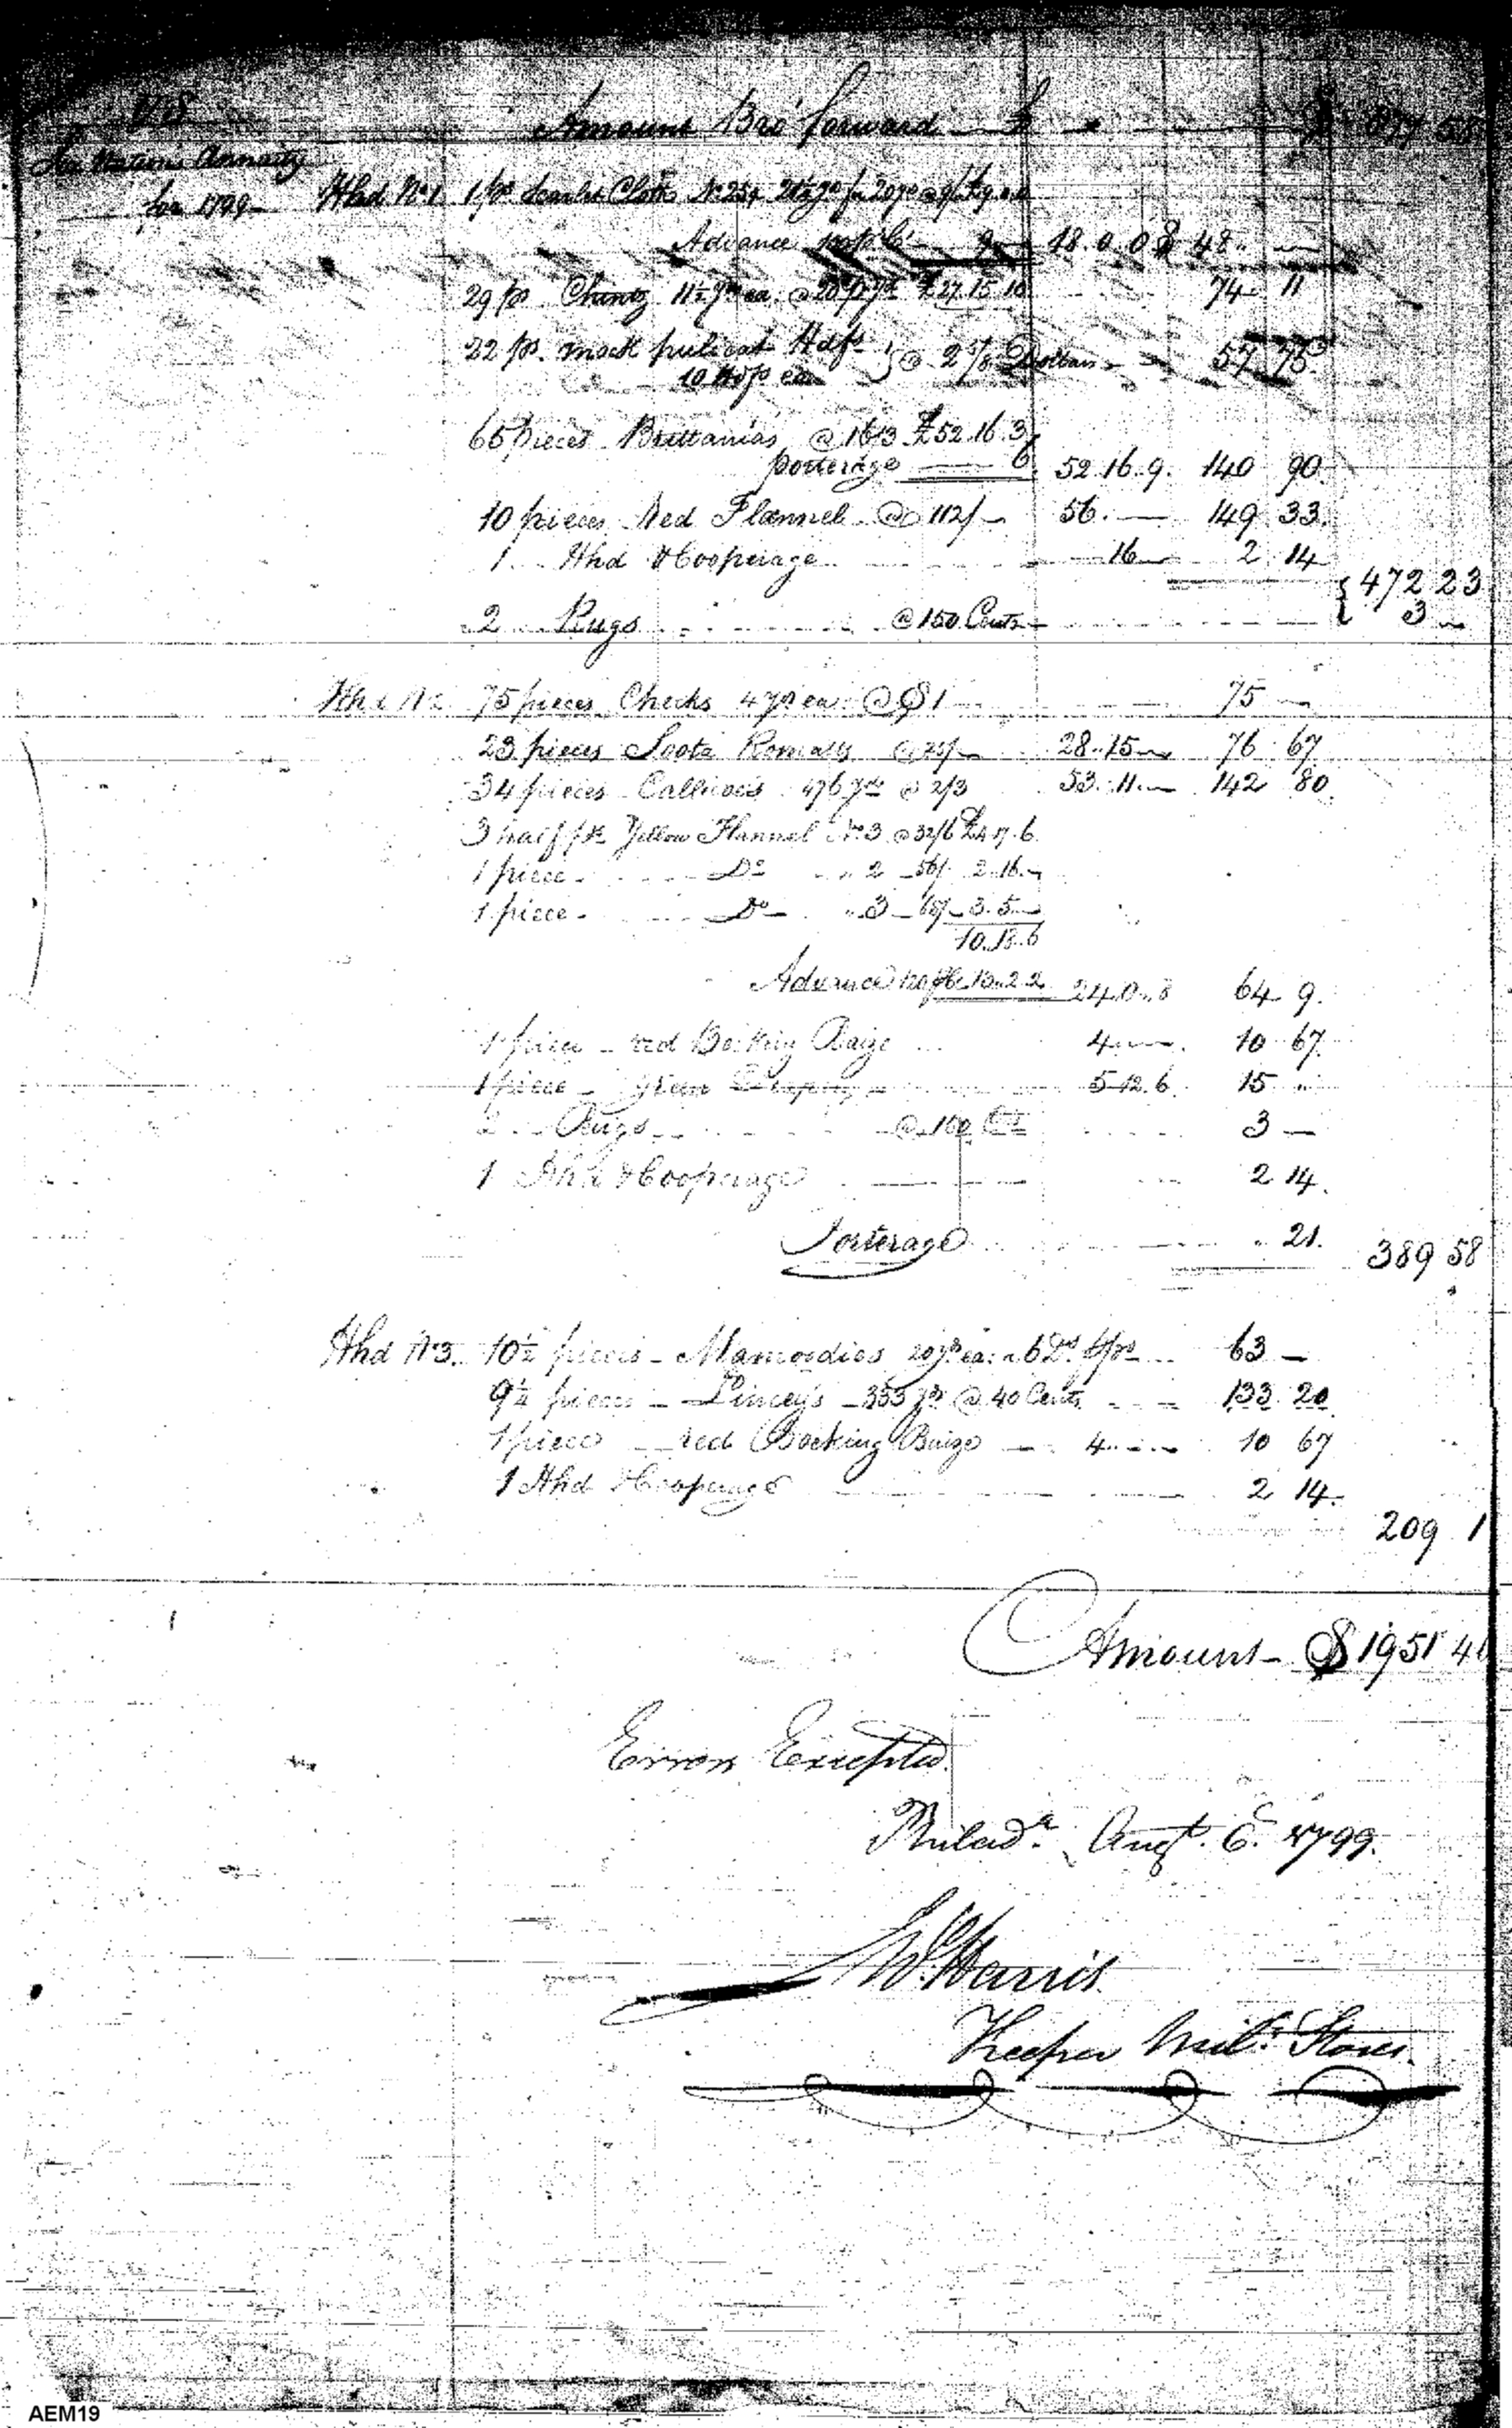 US Amount Bro' forward $ 877 58
Six Nations Annuity
for 1799 Hhd No 1 1 ps Scarlet Cloth No 254 21½ yds for 20 yds @ 9/ £9.0.0
Advance 100 p Ct 9 18.0.0 $ 48 —
29 ps Chintz 11½ yds ea. @ 20d p yd £27.15.10 74 11
22 ps. mock pulicat Hdfs } @ 2 5/8 Dollars 57 75
10 Hdfs ea
65 pieces Brittanias @ 16/3 £52.16.3
Porterage 6 52.16.9. 140 90.
10 pieces Red Flannel @ 112/- 56.— 149 33.
1 Hhd & Cooperage 16— 2 14
{ 472 23
2 Rugs @ 150 Cents { 3 —
Hhd No 2 75 pieces Checks 4 yds ea @ $1 75 —
23 pieces Soota Romalls @ 25/- 28.15— 76 67
34 pieces Callicoes 476 yds @ 2/3 53.11.— 142 80.
3 half ps Yellow Flannel No 3 @ 32/6 £4.17.6
1 piece Do 2 56/ 2.16.—
1 piece Do 3 65/- 3.5—
10.18.6
Advance 120 p Ct 13.2.2 24.0.8 64 9.
1 piece red Bocking Baize 4.—. 10 67.
1 piece Green 5.12.6. 15 "
2 Rugs @ 150 Cts 3 —
1 Hhd & Cooperage 2 14.
Porterage " 21. 389 58
Hhd No 3. 10½ pieces Mamoodies 20 yds ea. a 6 Drs p ps 63 —
9¼ pieces Lincey's 333 yds @ 40 Cents 133 20
1 piece red Bocking Baize 4.— 10 67
1 Hhd & Cooperage 2 14.
209 1
Amount $ 1951 40
Errors Excepted.
Philada. Augt. 6. 1799.
Harris
Keeper Mily. Stores.
AEM19